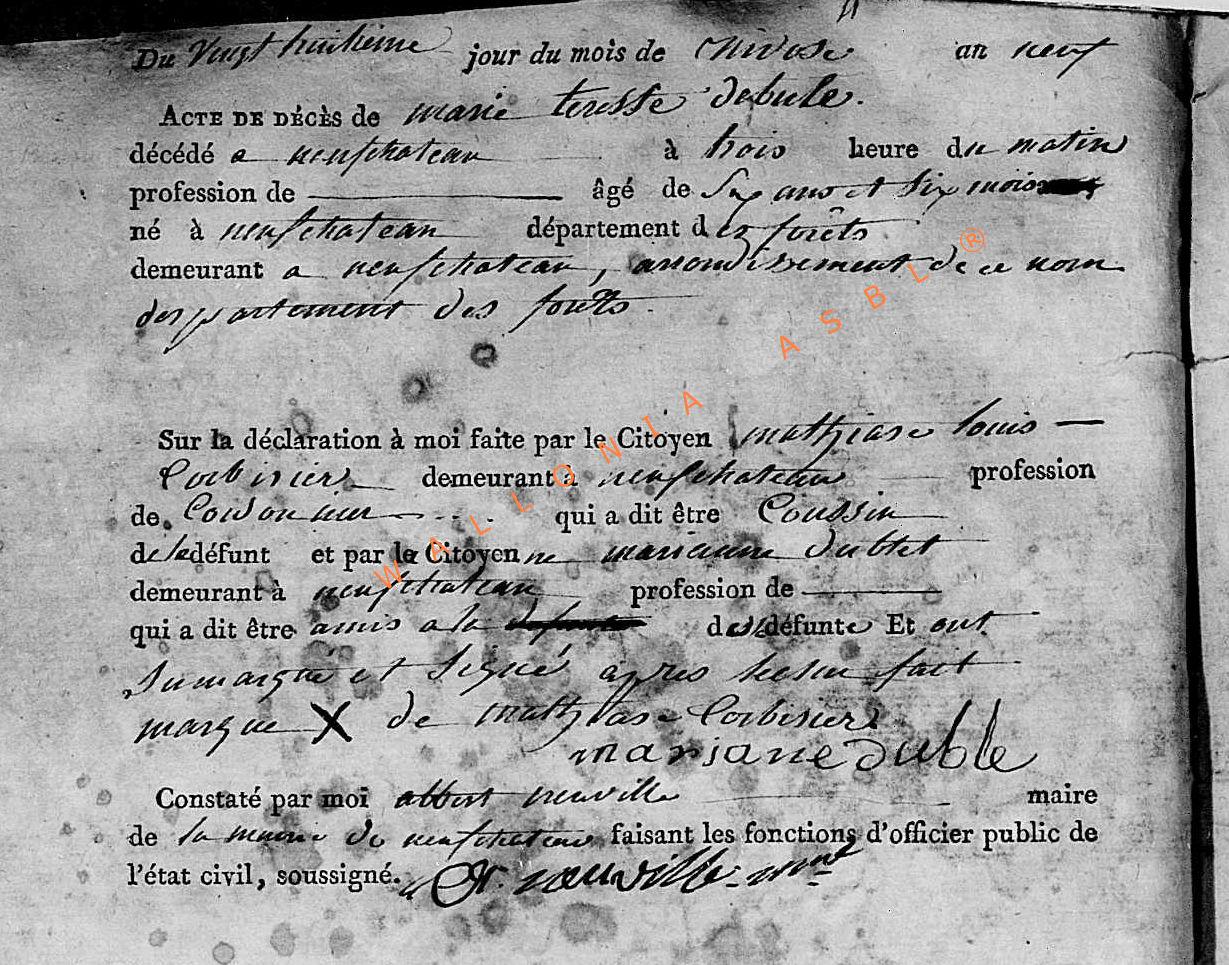 Du Vingt huitieme jour du mois de nivose an neuf
ACTE DE DÉCÈS de marie teresse debule.
décédé a neufchateau à trois heure du matin
profession de âgé de Six ans et six mois
né à neufchateau département des forêts
demeurant a neufchateau, arrondissement de ce nom
departement des forêts.
Sur la déclaration à moi faite par le Citoyen mathiase louis
Corbisier demeurant à neufchateau profession
de Cordonnier qui a dit être Coussin
de la défunt et par la Citoyenne marianne dublet
demeurant à neufchateau profession de
qui a dit être amis a la défunte Et ont
Sumarqué et Signé après lecture fait
marque X de mathiase Corbisier
mariane duble
Constaté par moi albert neuville maire
de la mairie de neufchateau faisant les fonctions d'officier public de
l'état civil, soussigné. A. neuville
WALLONIA ASBL ®